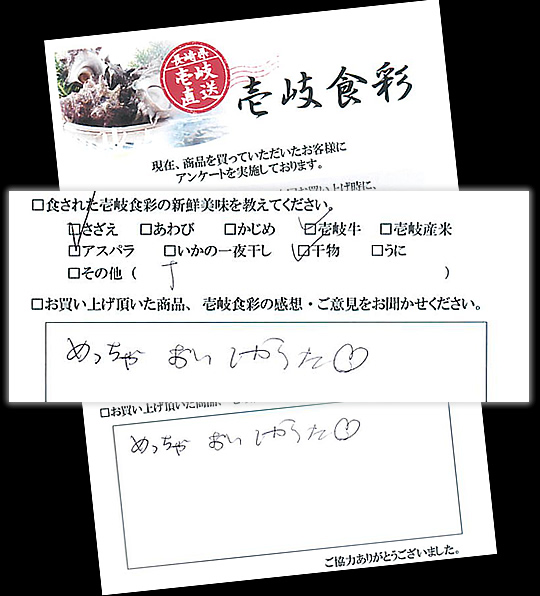 長崎県
壱岐
直送
壱岐食彩
現在、商品を買っていただいたお客様に
アンケートを実施しております。
お買い上げ時に、
□食された壱岐食彩の新鮮美味を教えてください。
□さざえ □あわび □かじめ □壱岐牛 □壱岐産米
□アスパラ □いかの一夜干し □干物 □うに
□その他（ ）
□お買い上げ頂いた商品、壱岐食彩の感想・ご意見をお聞かせください。
めっちゃ おいしかった
□お買い上げ頂いた商品、
めっちゃ おいしかった
ご協力ありがとうございました。